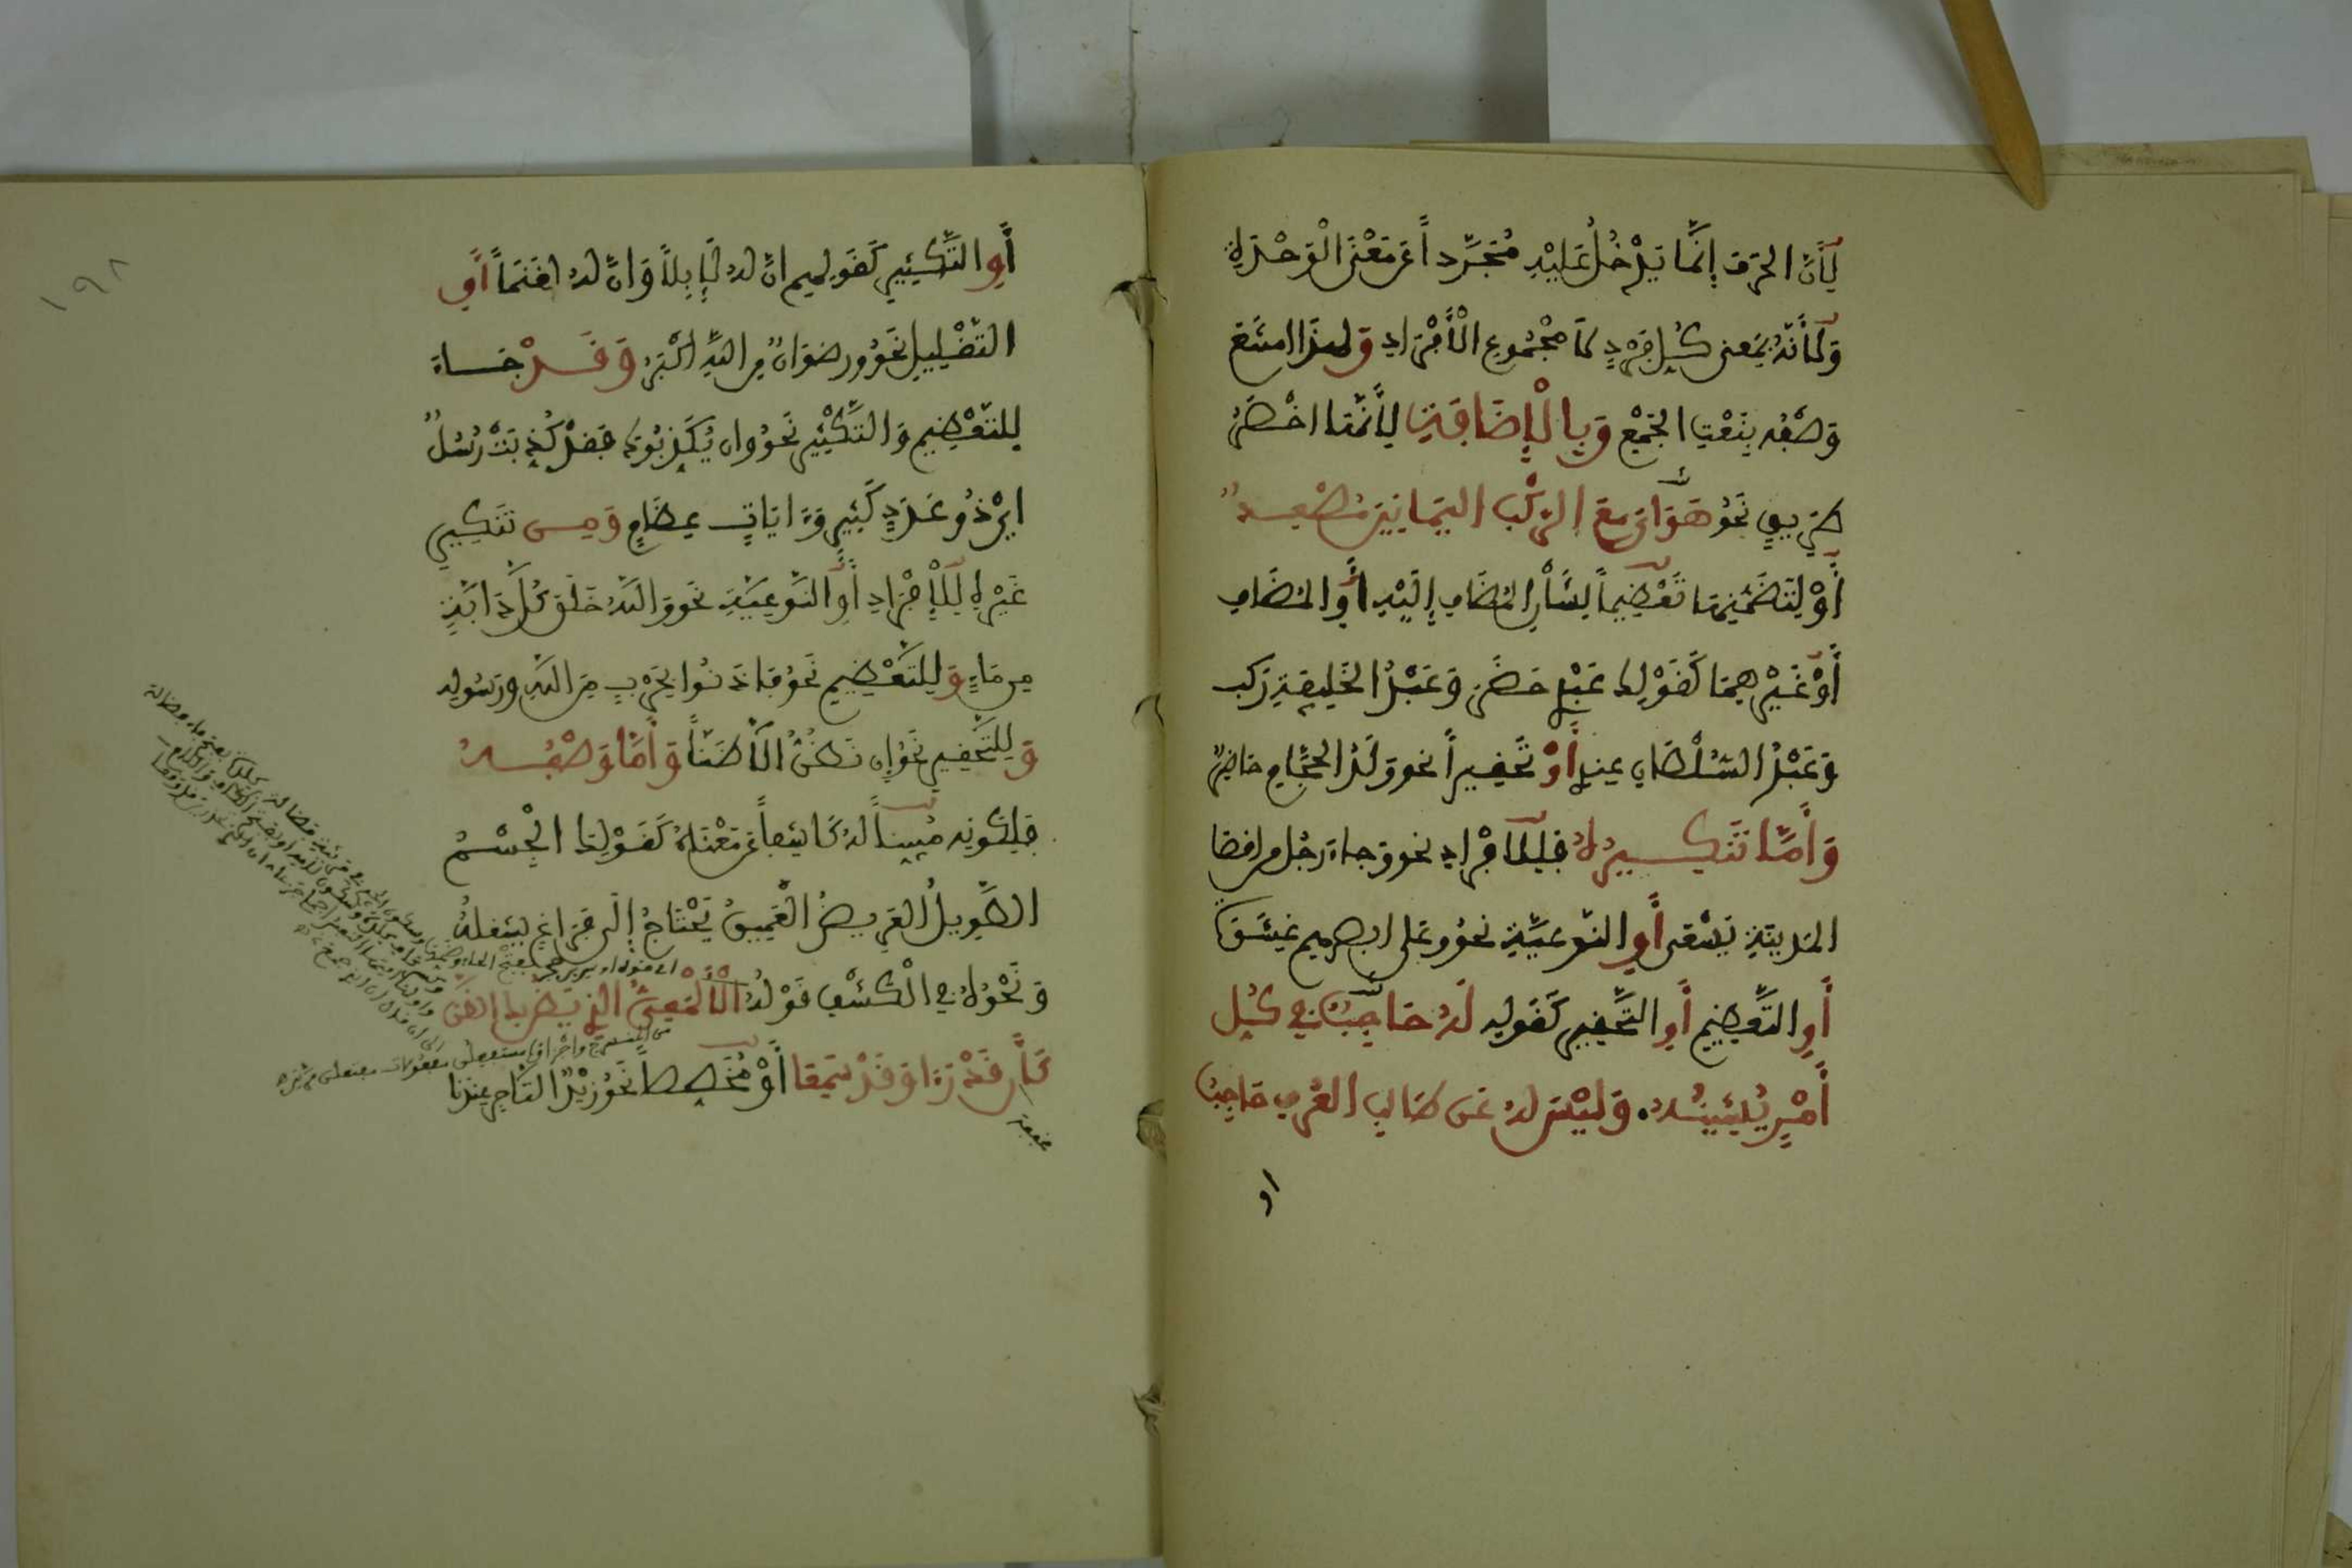 لِأَنَّ الحَرْفَ إِنَّمَا يَدْخُلُ عَلَيْهِ مُجَرَّداً عَن مَعْنَى الْوَحْدَةِ
وَلِأَنَّهُ بِمَعنى كُلِّ فَرْدٍ لَا مَجْمُوعِ الْأَفْرَادِ وَلهذَا امتَنَعَ
وَصْفُه بِنَعْتِ الجَمْعِ وَبِالْإِضَافَةِ لِأَنَّهَا اخْصَرُ
طَرِيقٍ نَحْوُ هَوَايَ مَعَ الرَّكْبِ اليَمَانِينَ مُصْعِدٌ
أَوْ لِتَضَمُّنِهَا تَعْظِيماً لِشَأْنِ المُضَافِ إِلَيْهِ أَوِ المُضَافِ
أَوْ غَيْرِهِمَا كَقَوْلِكَ عَبْدِي حَضَرَ وَعَبْدُ الخَلِيفَةِ رَكِبَ
وَعَبْدُ السُّلْطَانِ عِندِي أَوْ تَحْقِيراً نحو وَلَدُ الحَجَّامِ حَاضِرٌ
وَأَمَّا تَنْكِيرُهُ فَلِلْأَفْرَادِ نحو وَجَاءَ رَجُل مِن اقصَا
المَدِينَةِ يَسْعَى أَوِ النَّوعِيَّةِ نحوُ وعَلى ابصرهم غِشَوَة
أَوِ التَّعْظِيمِ أَوِ التَّحْقِيرِ كَقَولِهِ لَهُ حَاجِبٌ فِي كُلِّ
أَمْرٍ يُشِينُهُ. وَلَيْسَ لَهُ عَن طَالِبِ العُرْفِ حَاجِبُ
او
١٩٨
أَوِ التَّكْثِيرِ كَقَولهم انَّ لَهُ لَإِبِلاً وَانَّ لَهُ لغَنَماً أَوِ
التَّقْلِيلِ نَحْوُ ورضوانٌ مِن اللهِ أَكْبَرُ وَقَدْ جَاءَ
لِلتَّعْظِيمِ وَالتَّكْثِيرِ نَحوُ وان يُكَذِّبُوكَ فَقَدْ كُذِّبَتْ رُسُلٌ
ايْ ذُو عَدَدٍ كَثِيرٍ وَءَايَاتٍ عِظَامٍ وَمِن تَنكِيرِ
غَيْرِهِ لِلْإِفْرَادِ أَوِ النَّوعِيَّةِ نحو وَاللهُ خَلَقَ كُلَّ دَابَّةٍ
مِن مَاءٍ وَلِلتَّعْظِيمِ نَحوُ فَاذَنُوا بِحَرْبٍ مِّنَ اللهِ وَرَسُولِهِ
وَلِلتَّحْقِيرِ نَحْوُ إِن نَظُنُّ إِلَّا ظَنّاً وَأَمَّا وَصْفُهُ
فَلِكَونِه مُبَيِّناً لَهُ كَاشِفاً عَن مَعْنَاهُ كَقَوْلِكَ الْجِسْمُ
الطَّوِيلُ العَرِيضُ الْعَمِيقُ يَحْتَاجُ إِلَى فَرَاغٍ يَشغلُهُ
وَنَحْوُهُ فِي الْكَشْفِ قَوْلُهُ الْأَلْمَعِيُّ الَّذِي يَظُنُّ بِكَ الظَّنَّ
كَأَن قَدْ رَءَا وَقَدْ سَمِعَا أَوْ مُخَصِّصاً نَحْوُ زَيْدٌ التَّاجِرُ عِندَنَا